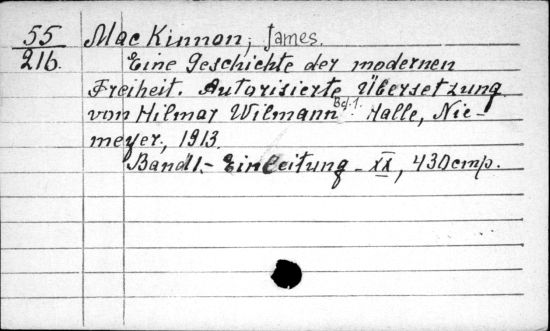 55 Mac Kinnon, James.
216. Eine Geschichte der modernen
Freiheit. Autorisierte Übersetzung
von Hilmar Wilmann Bd. 1. Halle, Nie-
meyer, 1913.
Band 1.- Einleitung - XX, 430 cmp.